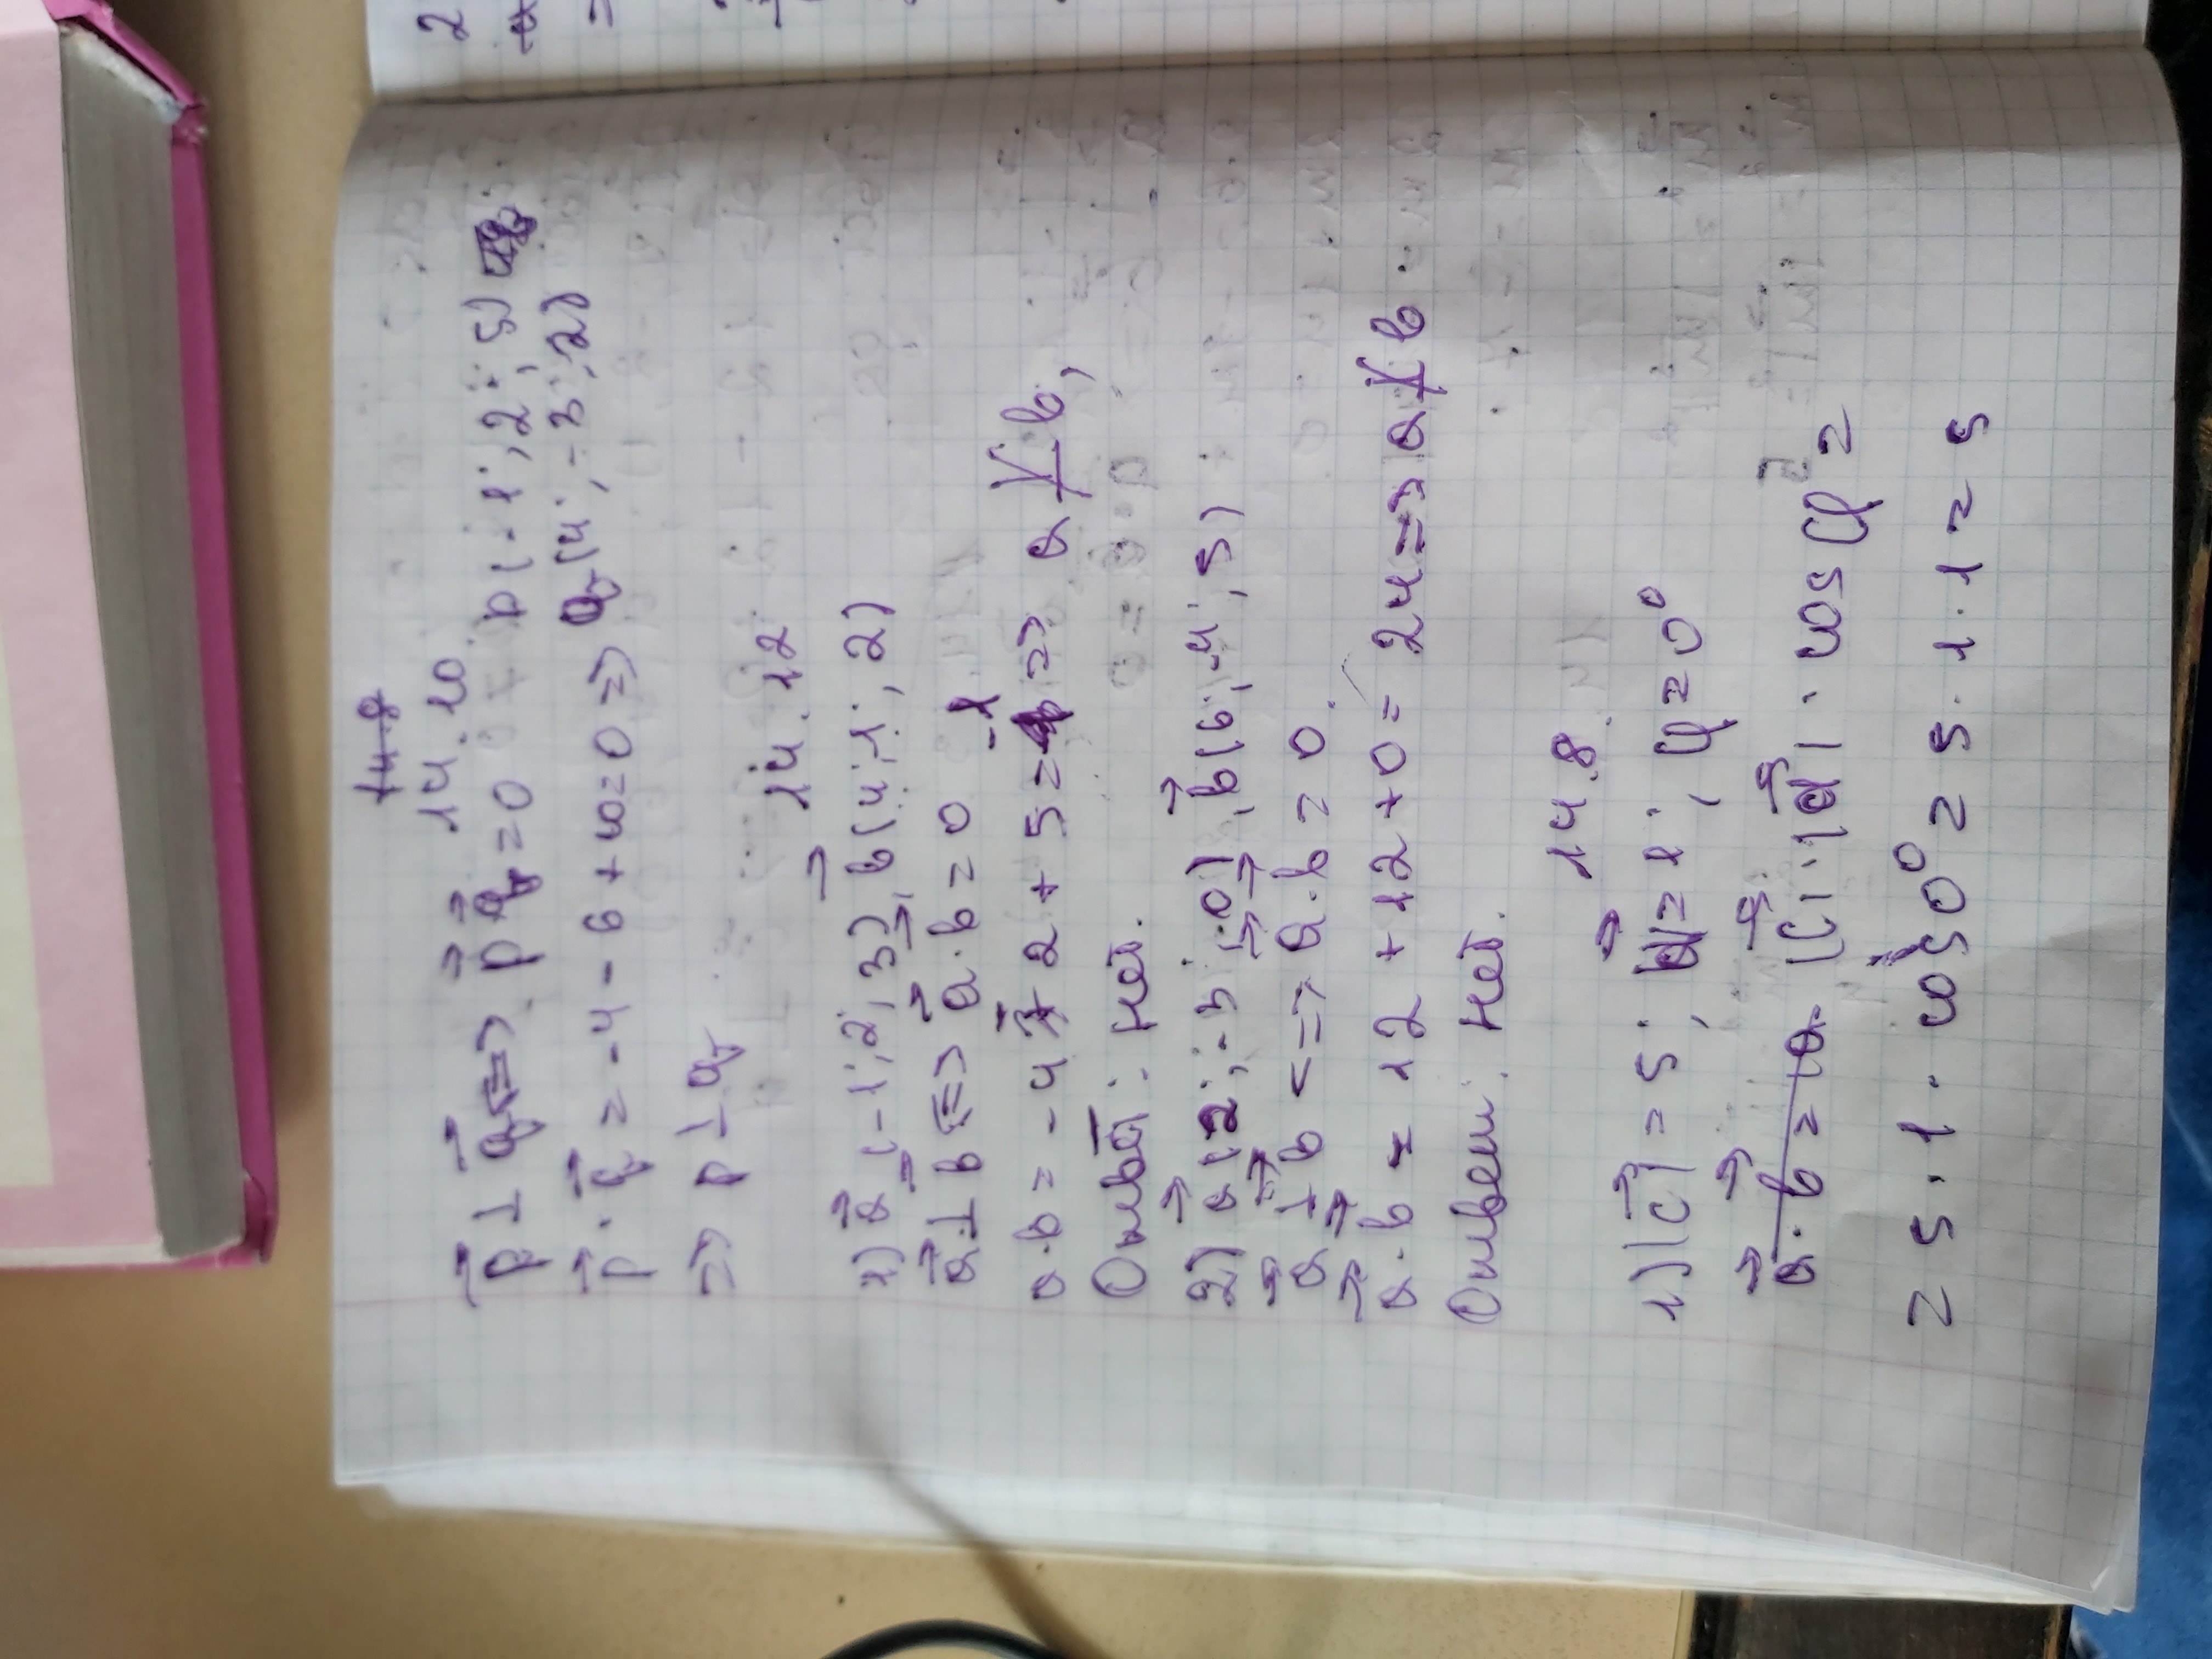 14.8
14.10
p ⊥ q <=> p q = 0 p(-1; 2; 5)
p · q = -4 - 6 + 10 = 0 => q(4; -3; 2)
=> p ⊥ q
14.12
1) a (-1; 2; 3), b(4; -1; 2)
a ⊥ b <=> a · b = 0
a·b = -4 - 2 + 5 = -1 => a ⊥̸ b,
Ответ: нет.
2) a (2; -3; 0), b(6; -4; 5)
a ⊥ b <=> a · b = 0.
a · b = 12 + 12 + 0 = 24 => a ⊥̸ b
Ответ: нет.
14.8.
1) |c| = 5; d = 1; φ = 0°
a · b = a · |c| · |d| · cos φ =
= 5 · 1 · cos 0° = 5 · 1 · 1 = 5